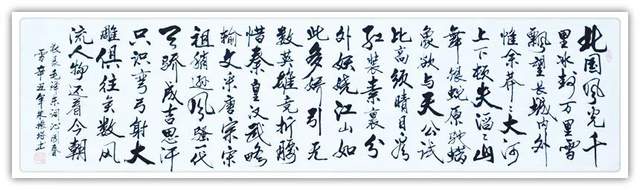 北国风光千
里冰封万里雪
飘望长城内外
惟余莽々大河
上下顿失滔々山
舞银蛇原驰蜡
象欲与天公试
比高须晴日看
红装素裹分
外妖娆江山如
此多娇引无
数英雄竞折腰
惜秦皇汉武略
输文采唐宗宋
祖稍逊风骚一代
天骄成吉思汗
只识弯弓射大
雕俱往矣数风
流人物还看今朝
毛泽东词沁园春
雪辛丑年